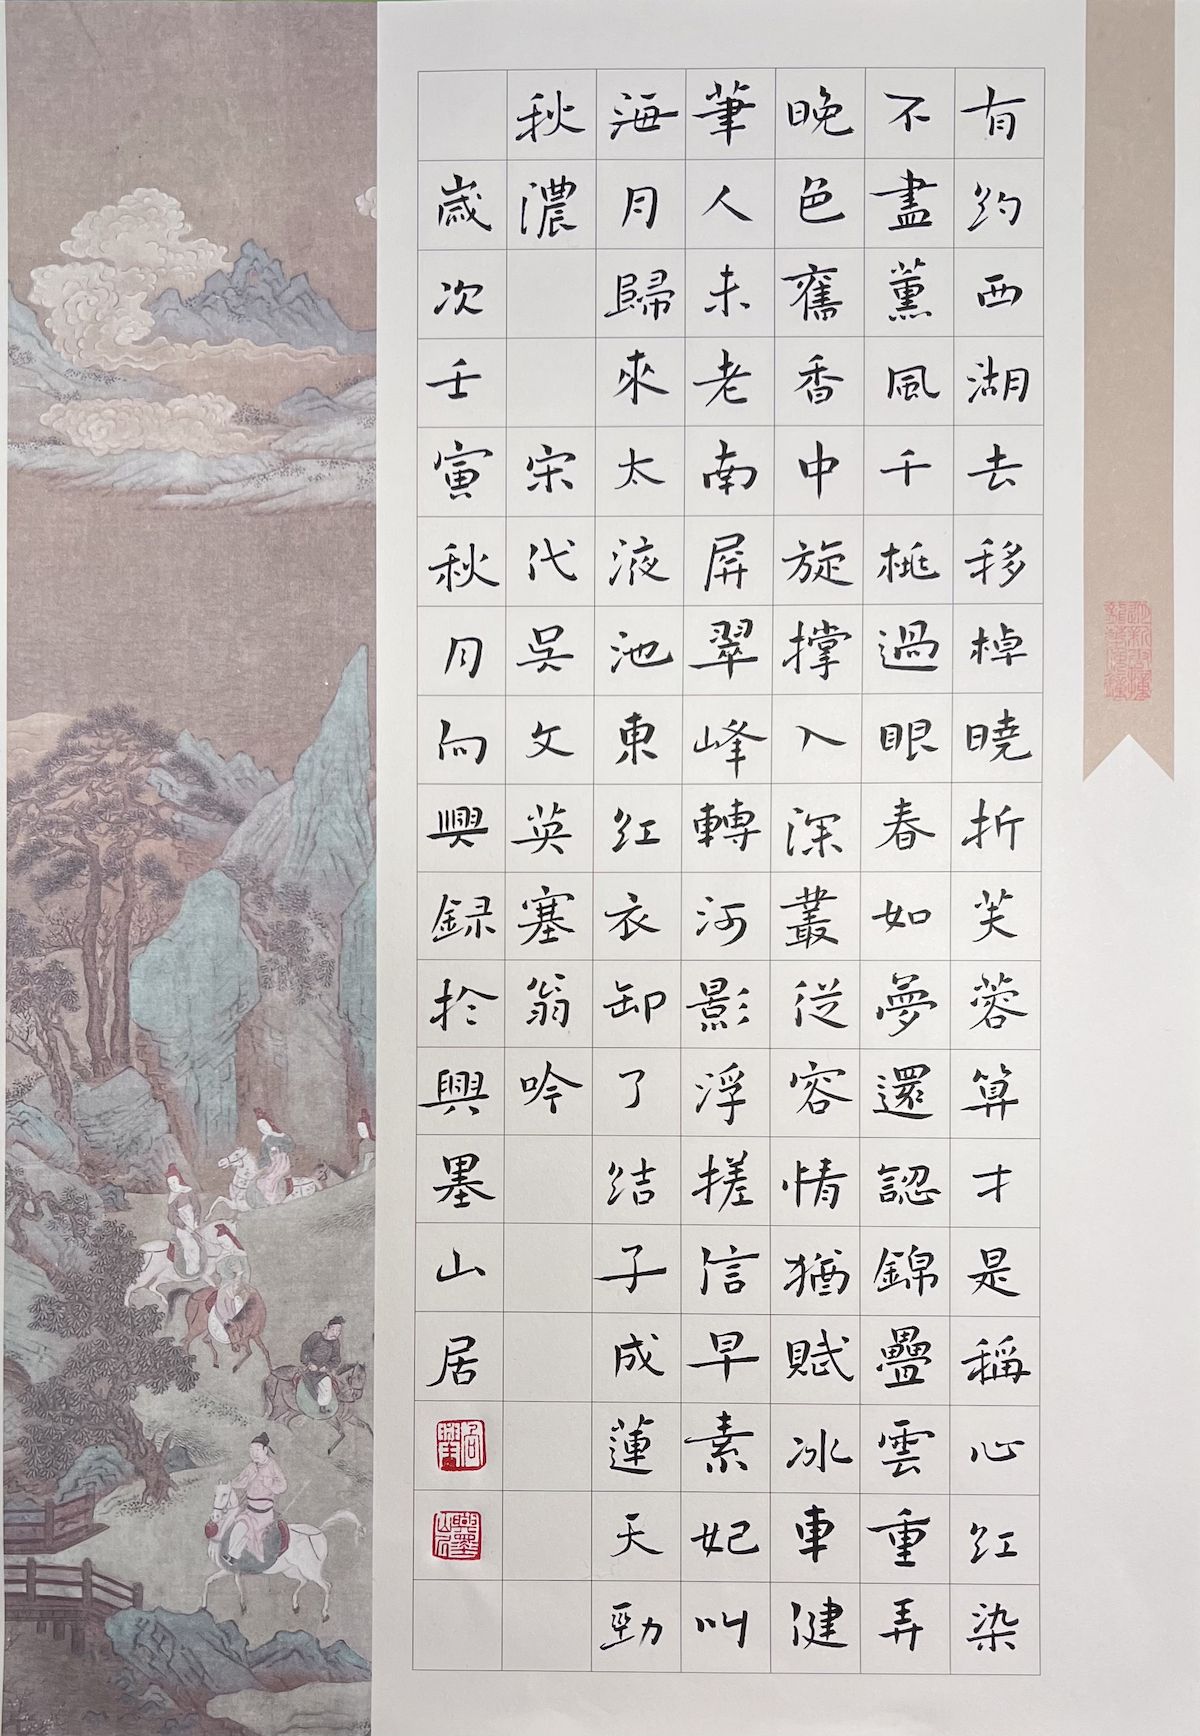 有約西湖去移棹曉折芙蓉算才是稱心紅染
不盡薰風千桃過眼春如夢還認錦疊雲重弄
晚色舊香中旋撐入深叢從容情猶賦冰車健
筆人未老南屏翠峰轉河影浮搓信早素妃叫
海月歸來太液池東紅衣卸了結子成蓮天勁
秋濃 宋代吳文英塞翁吟
歲次壬寅秋月向興録於興墨山居